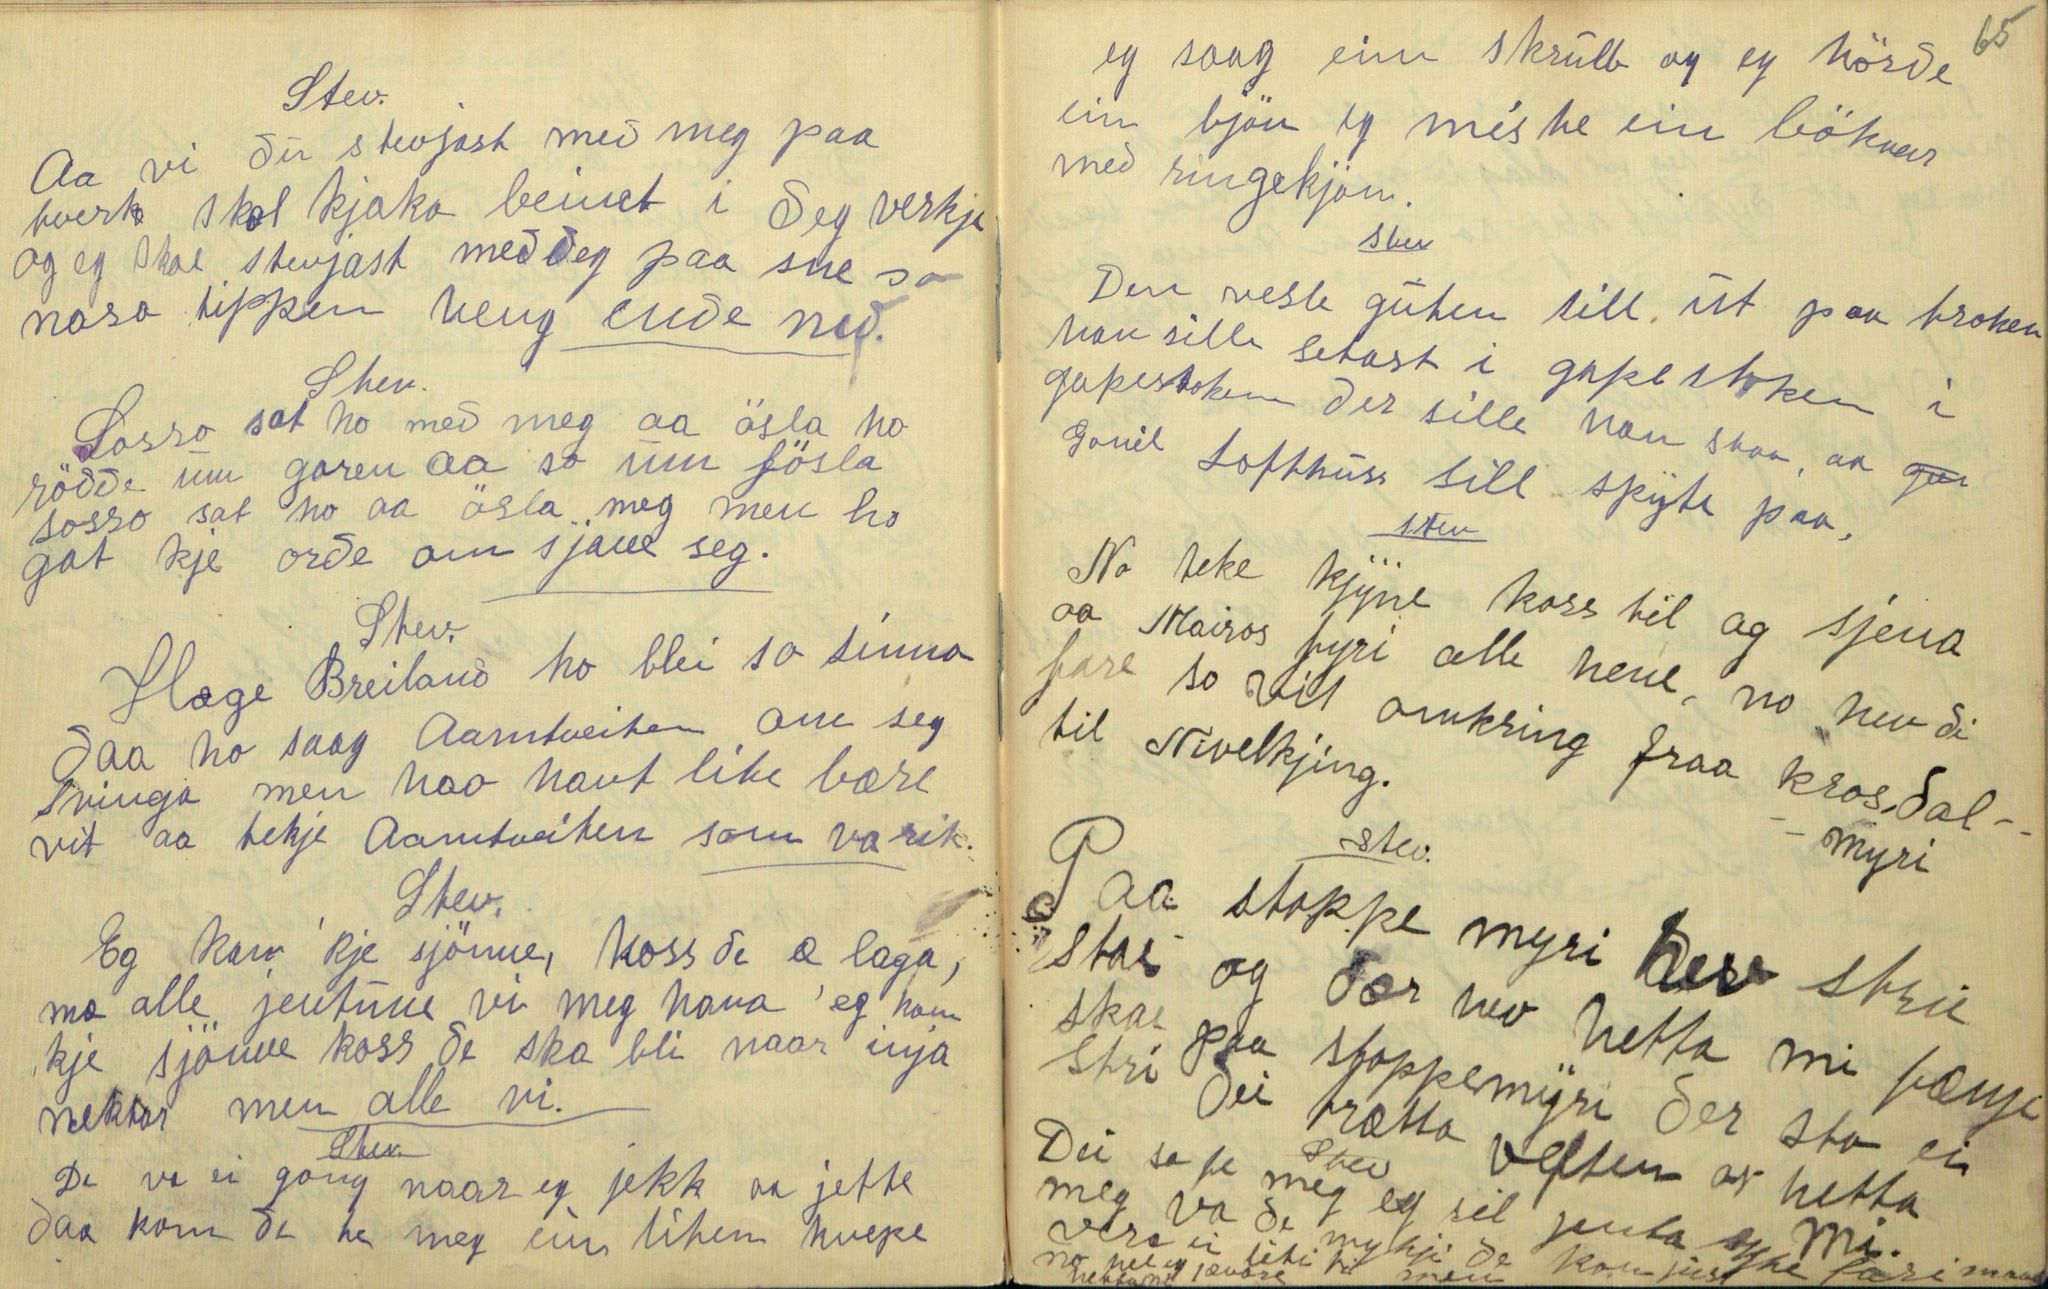 Stev.
Aa vi ðu stevjast með meg paa
skal kjaka beinet i ðeg verkje
og eg skal stevjast með ðeg paa sne so
nasa tippen heng enðe neð.
Stev.
Sosso sat ho með meg aa ösla ho
röððe um garen aa so um fjösla
sosso sat ho aa ösla meg men ho
gat kje orðe om sjave seg.
Stev.
Hæge Breilanð ho blei so sinna
ðaa ho saag Aamtveiten om seg
svinga men hao havt lite bære
vit aa tekje Aamtveiten som va rik.
Stev.
Eg kan 'kje sjönne, koss ðe æ laga,
mæ alle jentune vi meg hava 'eg kan
kje sjönne koss ðe ska bli naar inja
men alle vi.
Stev.
De va ei gong naar eg jekk aa jette
ðaa kom ðe te meg ein liten kvepe
65
eg saag ein skrubb og eg hörðe
ein bjön eg miste ein bökver
með ringekjön.
Stev
Den vesle guten sill ut paa broken
han sille setast i gapestoken i
gapestoken ðer sille han staa, aa
Gonil Lofthuss sill spyte paa,
stev
No teke kjyne koss til og sjena
aa Mairos fyri alle hene, no hev ði
fare so vit omkring fraa krosðal--
-- myri
til Nivelkjing.
stev.
Paa stoppe myri hev strie
stae og ðær hev hetta mi fænje
skae paa stoppemyri ðer sto ei
stri ðei trætta veften av hetta
mi.
Stev
Dei sa te meg eg sil jenta
meg va ðe mykji ðe kan
vera ei